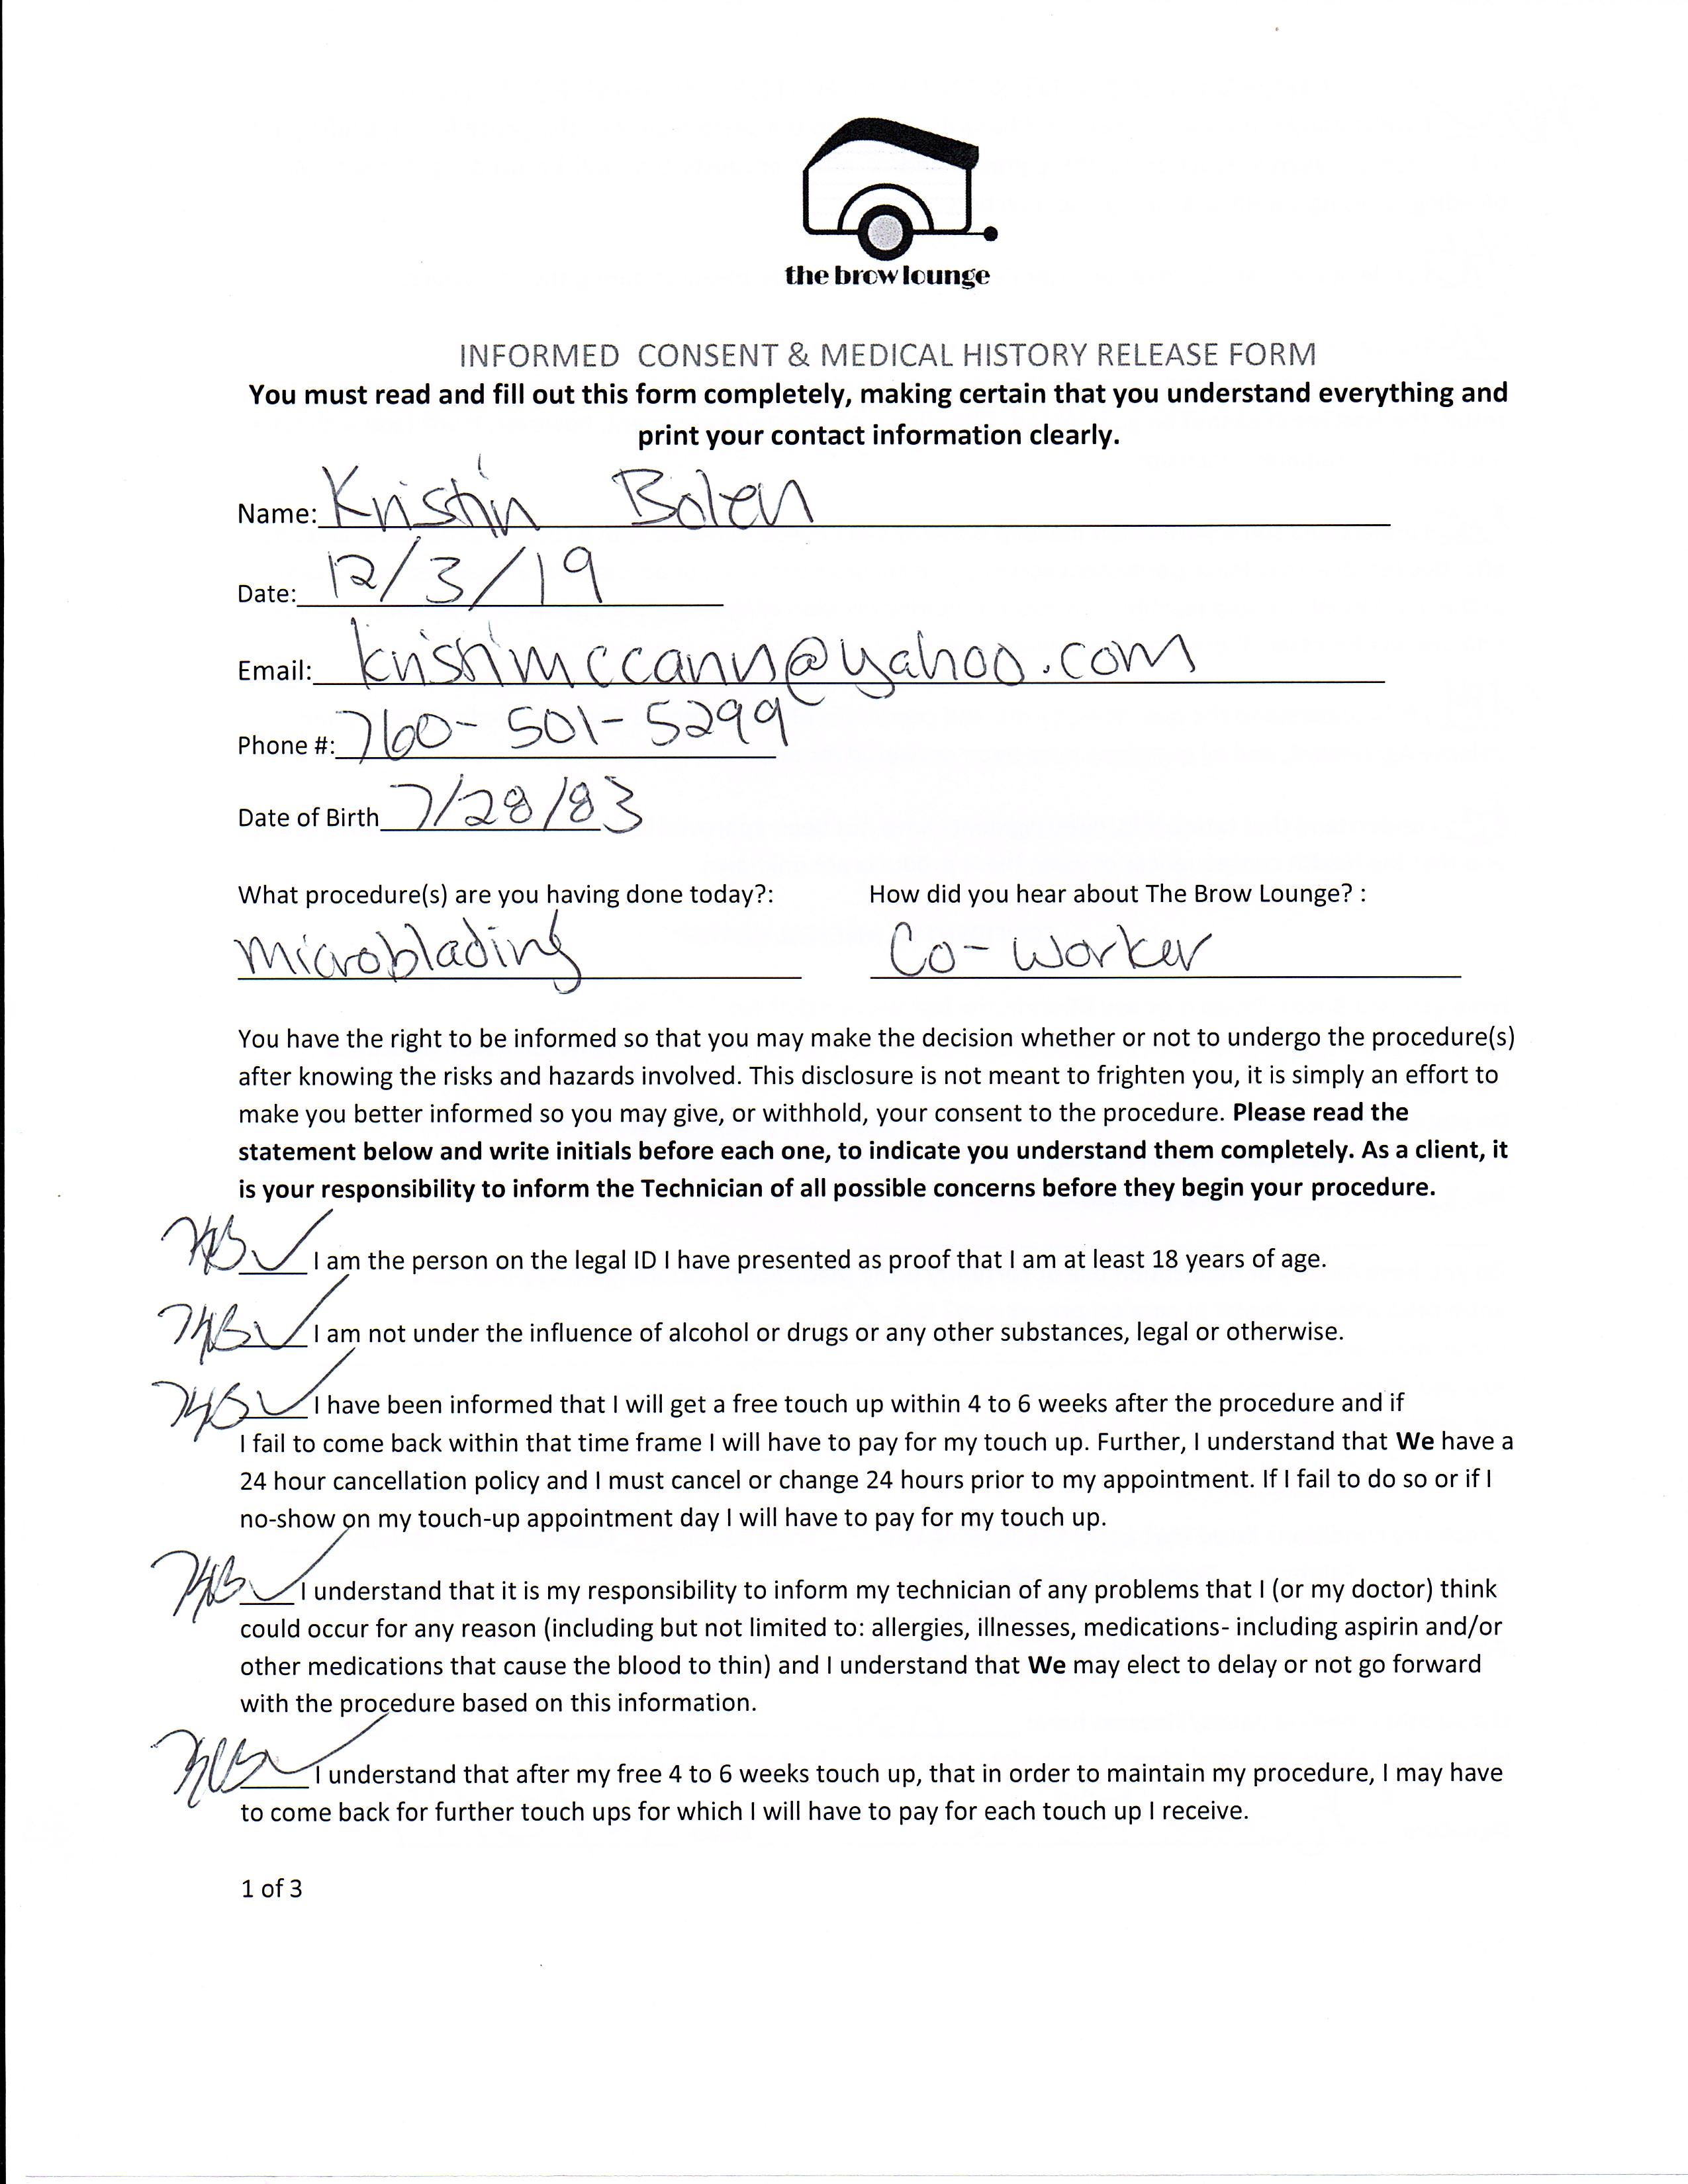 the brow lounge
INFORMED CONSENT & MEDICAL HISTORY RELEASE FORM
You must read and fill out this form completely, making certain that you understand everything and
print your contact information clearly.
Name: Kristin Bolen
Date: 12/3/19
Email: kristimccann@yahoo.com
Phone #: 760-501-5299
Date of Birth 7/28/83
What procedure(s) are you having done today?: How did you hear about The Brow Lounge? :
Microblading Co-worker
You have the right to be informed so that you may make the decision whether or not to undergo the procedure(s)
after knowing the risks and hazards involved. This disclosure is not meant to frighten you, it is simply an effort to
make you better informed so you may give, or withhold, your consent to the procedure. Please read the
statement below and write initials before each one, to indicate you understand them completely. As a client, it
is your responsibility to inform the Technician of all possible concerns before they begin your procedure.
I am the person on the legal ID I have presented as proof that I am at least 18 years of age.
I am not under the influence of alcohol or drugs or any other substances, legal or otherwise.
I have been informed that I will get a free touch up within 4 to 6 weeks after the procedure and if
I fail to come back within that time frame I will have to pay for my touch up. Further, I understand that We have a
24 hour cancellation policy and I must cancel or change 24 hours prior to my appointment. If I fail to do so or if I
no-show on my touch-up appointment day I will have to pay for my touch up.
I understand that it is my responsibility to inform my technician of any problems that I (or my doctor) think
could occur for any reason (including but not limited to: allergies, illnesses, medications- including aspirin and/or
other medications that cause the blood to thin) and I understand that We may elect to delay or not go forward
with the procedure based on this information.
I understand that after my free 4 to 6 weeks touch up, that in order to maintain my procedure, I may have
to come back for further touch ups for which I will have to pay for each touch up I receive.
1 of 3